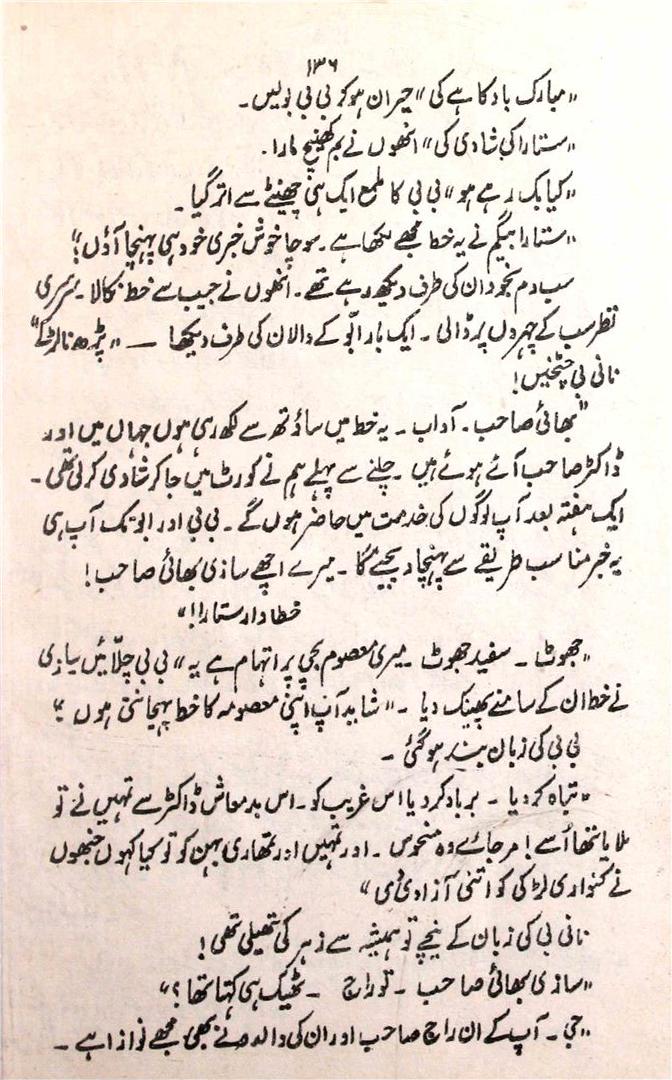 ۱۳۶
"مبارک باد کاہے کی" حیران ہو کر بی بی بولیں۔
"ستارا کی شادی کی" انھوں نے بم کھینچ مارا۔
"کیا بک رہے ہو" بی بی کا ملمع ایک ہی چھینٹے سے اتر گیا۔
"ستارا بیگم نے یہ خط مجھے لکھا ہے۔ سوچا خوش خبری خود ہی پہنچا آؤں؟"
سب دم بخود ان کی طرف دیکھ رہے تھے۔ انھوں نے جیب سے خط نکالا۔ سرسری
نظر سب کے چہروں پر ڈالی۔ ایک بار ابّو کے دالان کی طرف دیکھا — "پڑھ نا لڑکے"
نانی بی چٹخیں!
"بھائی صاحب۔ آداب۔ یہ خط میں ساؤتھ سے لکھ رہی ہوں جہاں میں اور
ڈاکٹر صاحب آئے ہوئے ہیں۔ چلنے سے پہلے ہم نے کورٹ میں جا کر شادی کر لی تھی۔
ایک ہفتہ بعد آپ لوگوں کی خدمت میں حاضر ہوں گے۔ بی بی اور ابو تک آپ ہی
یہ خبر مناسب طریقے سے پہنچا دیجیے گا۔ میرے اچھے سازی بھائی صاحب!
خطاوار ستارا!"
"جھوٹ۔ سفید جھوٹ۔ میری معصوم بچی پر اتہام ہے یہ" بی بی چلّائیں سازی
نے خط ان کے سامنے پھینک دیا۔ "شاید آپ اپنی معصومہ کا خط پہچانتی ہوں؟"
بی بی کی زبان بند ہو گئی۔
"تباہ کر دیا۔ برباد کر دیا اس غریب کو۔ اس بدمعاش ڈاکٹر سے تمہیں نے تو
ملایا تھا اُسے! مر جائے وہ منحوس۔ اور تمہیں اور تمھاری بہن کو تو کیا کہوں جنھوں
نے کنواری لڑکی کو اتنی آزادی دی"
نانی بی کی زبان کے نیچے تو ہمیشہ سے زہر کی تھیلی تھی!
"سازی بھائی صاحب۔ تو راج۔ ٹھیک ہی کہتا تھا؟"
"جی۔ آپ کے ان راج صاحب اور ان کی والدہ نے بھی مجھے نوازا ہے۔